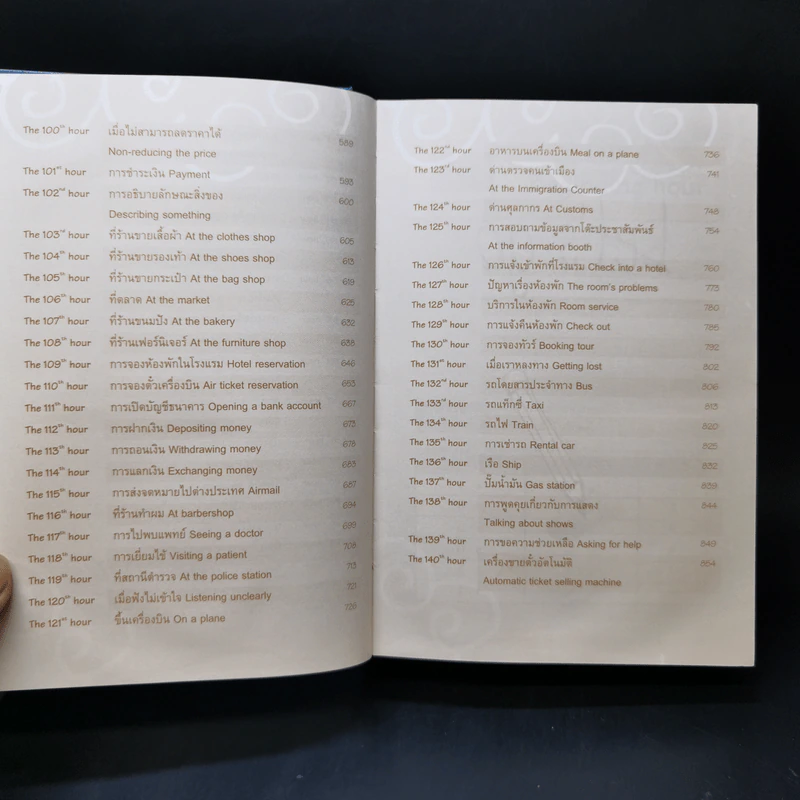 The 100th hour เมื่อไม่สามารถลดราคาได้
Non-reducing the price 589
The 101st hour การชำระเงิน Payment 593
The 102nd hour การอธิบายลักษณะสิ่งของ 600
Describing something
The 103rd hour ที่ร้านขายเสื้อผ้า At the clothes shop 605
The 104th hour ที่ร้านขายรองเท้า At the shoes shop 613
The 105th hour ที่ร้านขายกระเป๋า At the bag shop 619
The 106th hour ที่ตลาด At the market 625
The 107th hour ที่ร้านขนมปัง At the bakery 632
The 108th hour ที่ร้านเฟอร์นิเจอร์ At the furniture shop 638
The 109th hour การจองห้องพักในโรงแรม Hotel reservation 646
The 110th hour การจองตั๋วเครื่องบิน Air ticket reservation 653
The 111th hour การเปิดบัญชีธนาคาร Opening a bank account 667
The 112th hour การฝากเงิน Depositing money 673
The 113th hour การถอนเงิน Withdrawing money 678
The 114th hour การแลกเงิน Exchanging money 683
The 115th hour การส่งจดหมายไปต่างประเทศ Airmail 687
The 116th hour ที่ร้านทำผม At barbershop 694
The 117th hour การไปพบแพทย์ Seeing a doctor 699
The 118th hour การเยี่ยมไข้ Visiting a patient 708
The 119th hour ที่สถานีตำรวจ At the police station 713
The 120th hour เมื่อฟังไม่เข้าใจ Listening unclearly 721
The 121st hour ขึ้นเครื่องบิน On a plane
The 122nd hour อาหารบนเครื่องบิน Meal on a plane 736
The 123rd hour ด่านตรวจคนเข้าเมือง 741
At the Immigration Counter
The 124th hour ด่านศุลกากร At Customs 748
The 125th hour การสอบถามข้อมูลจากโต๊ะประชาสัมพันธ์ 754
At the information booth
The 126th hour การแจ้งเข้าพักที่โรงแรม Check into a hotel 760
The 127th hour ปัญหาเรื่องห้องพัก The room's problems 773
The 128th hour บริการในห้องพัก Room service 780
The 129th hour การแจ้งคืนห้องพัก Check out 785
The 130th hour การจองทัวร์ Booking tour 792
The 131st hour เมื่อเราหลงทาง Getting lost 802
The 132nd hour รถโดยสารประจำทาง Bus 806
The 133rd hour รถแท็กซี่ Taxi 813
The 134th hour รถไฟ Train 820
The 135th hour การเช่ารถ Rental car 825
The 136th hour เรือ Ship 832
The 137th hour ปั๊มน้ำมัน Gas station 839
The 138th hour การพูดคุยเกี่ยวกับการแสดง 844
Talking about shows
The 139th hour การขอความช่วยเหลือ Asking for help 849
The 140th hour เครื่องขายตั๋วอัตโนมัติ 854
Automatic ticket selling machine